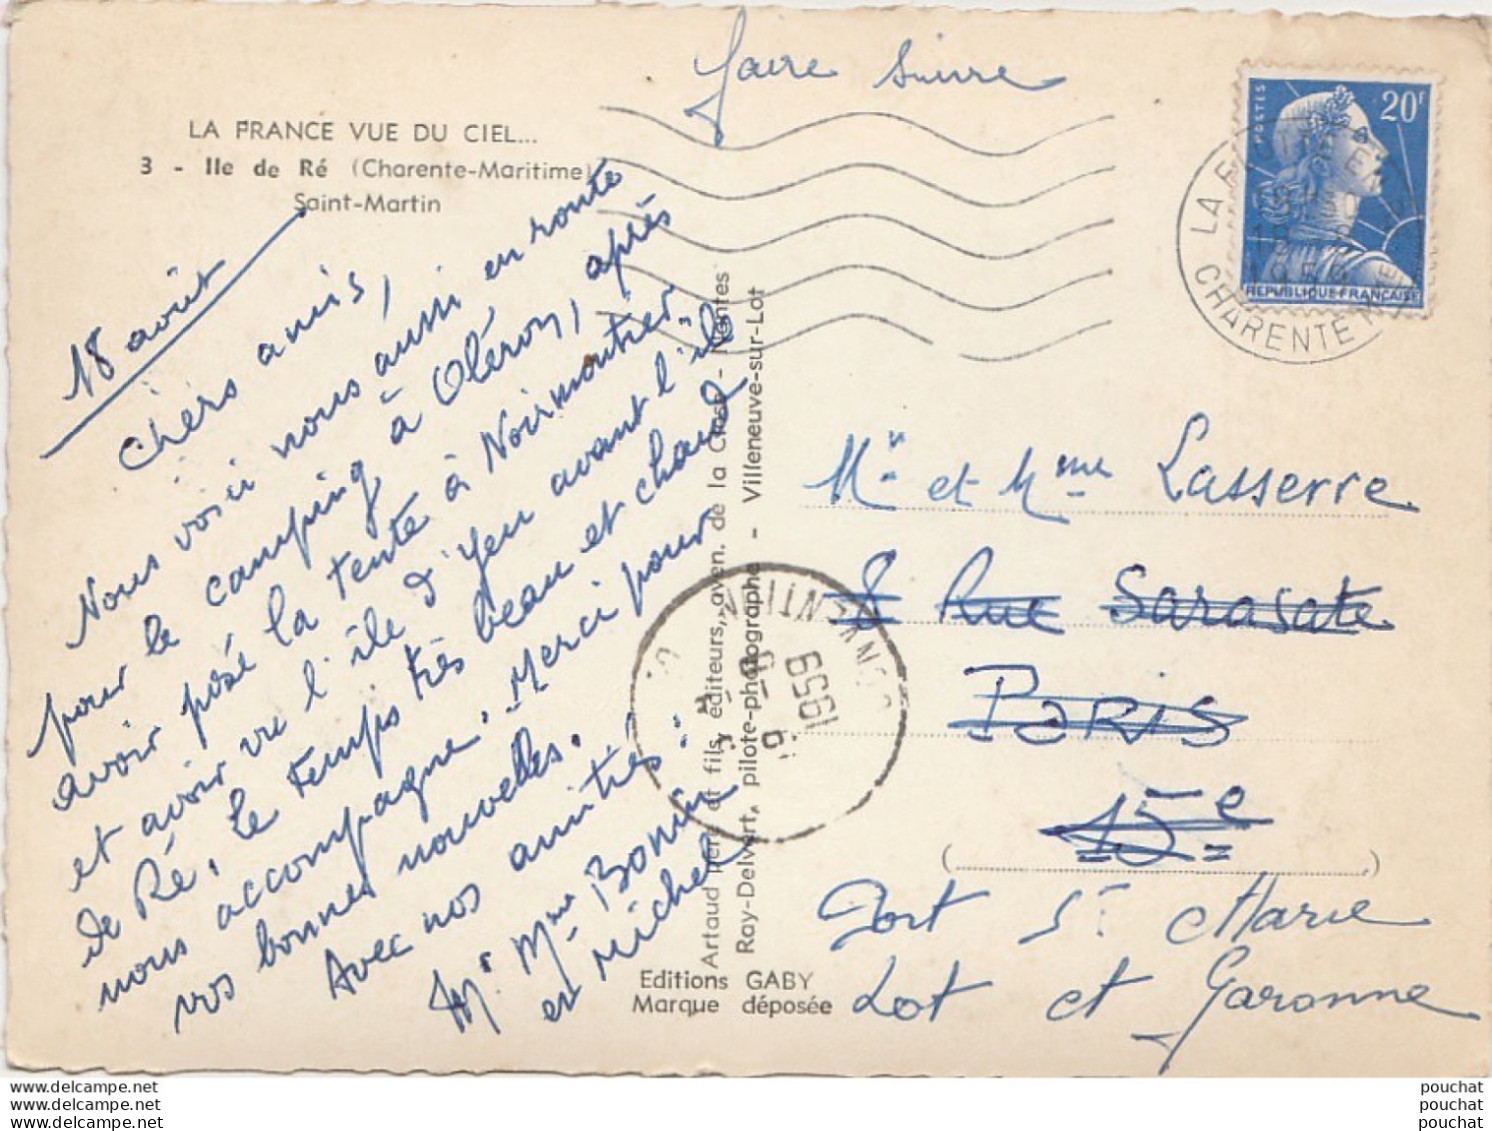 faire suivre
LA FRANCE VUE DU CIEL...
3 - Ile de Ré (Charente-Maritime)
Saint-Martin
18 août
Chers amis,
Nous voici nous aussi en route
pour le camping à Oléron, après
avoir posé la tente à Noirmoutier
et avoir vu l'île d'Yeu avant l'île
de Ré. Le temps très beau et chaud
nous accompagne. Merci pour
vos bonnes nouvelles.
Avec nos amitiés :
Mr Mme Bonin
et Michel
Artaud père et fils, éditeurs, aven. de la Close - Nantes
Ray-Delvert, pilote-photographe - Villeneuve-sur-Lot
Editions GABY
Marque déposée
POSTES
20F
REPUBLIQUE FRANÇAISE
CHARENTE
1959
Mr et Mme Lasserre
8 Rue Sarasate
PARIS
15e
Port Ste Marie
Lot et Garonne
www.delcampe.net
www.delcampe.net
www.delcampe.net
pouchat
pouchat
pouchat